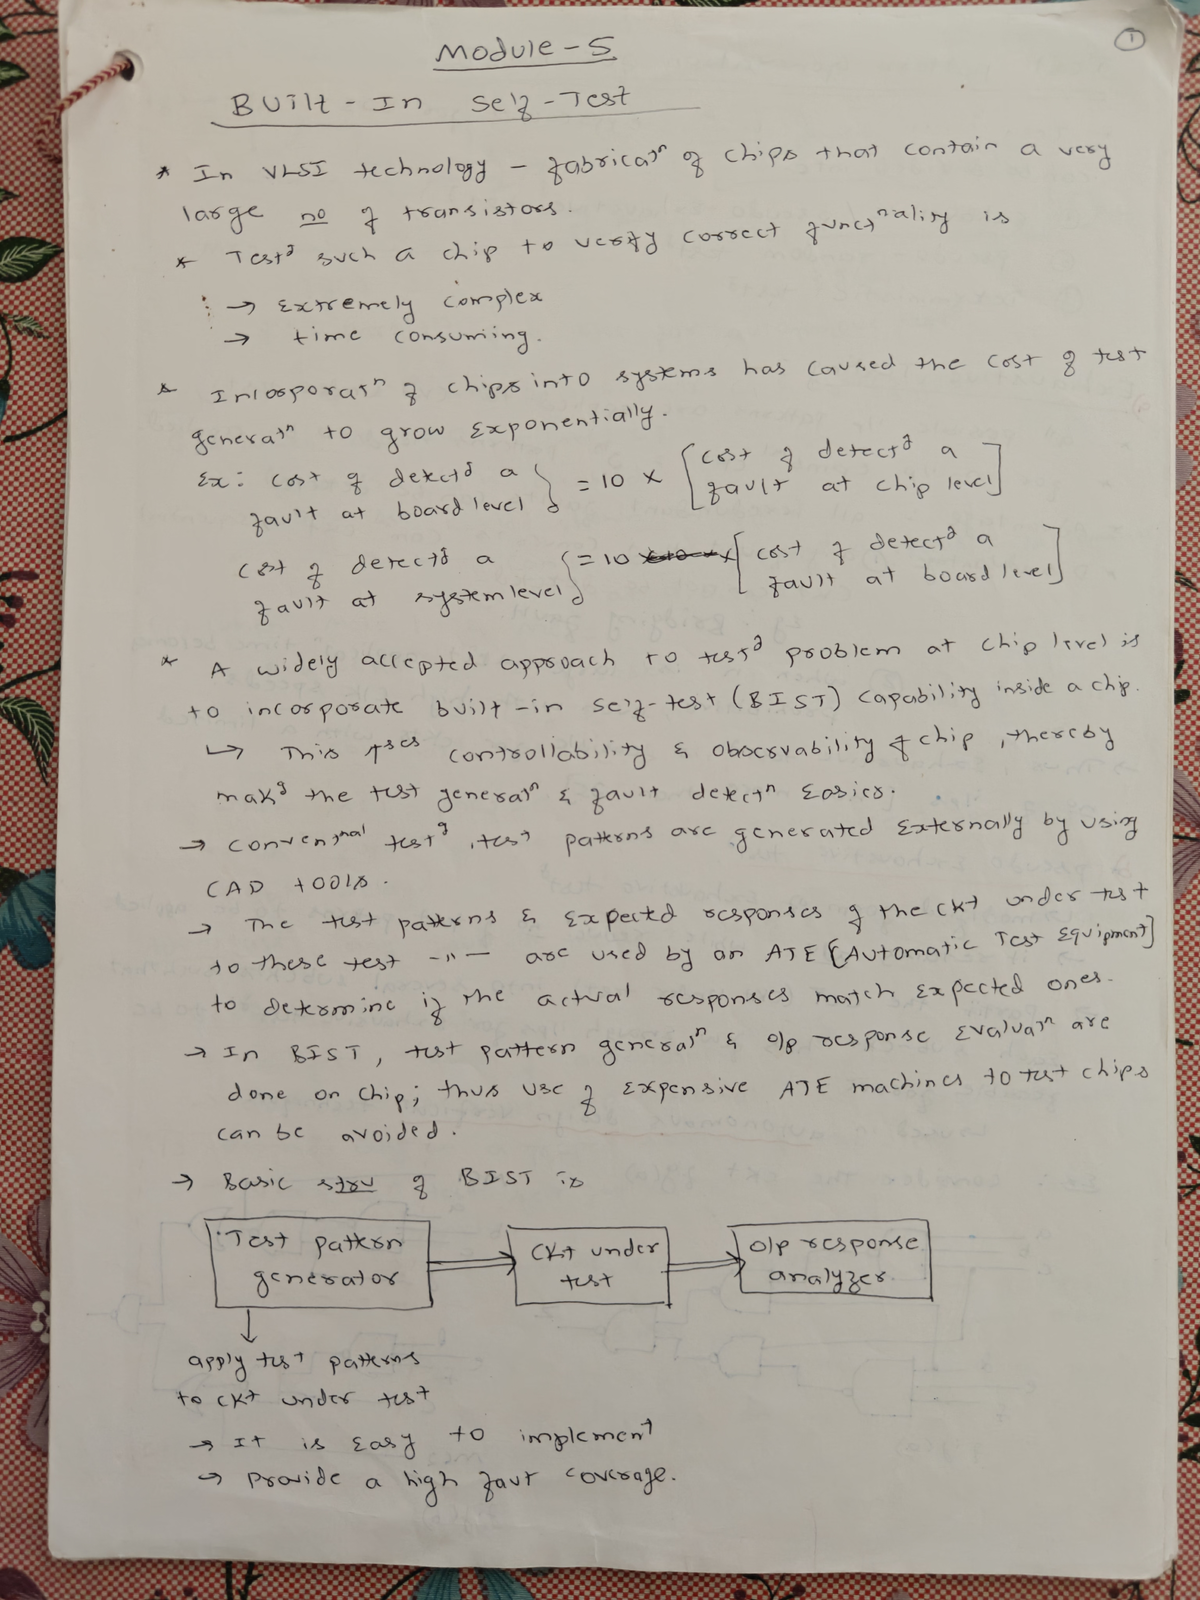 1
Module-5
Built-In Self-Test
* In VLSI technology - fabricatⁿ of chips that contain a very
large no of transistors.
* Testᵍ such a chip to verify correct functⁿality is
→ Extremely complex
→ time consumiing.
* Incorporatⁿ of chips into systems has caused the cost of test
generatⁿ to grow Exponentially.
Ex: cost of detectᵍ a } = 10 × [cost of detectᵍ a
fault at board level fault at chip level]
cost of detectᵍ a } = 10 × [cost of detectᵍ a
fault at system level fault at board level]
* A widely accepted approach to testᵍ problem at chip level is
to incorporate built-in self-test (BIST) capability inside a chip.
↳ This ↑ses controllability & observability of chip, thereby
makᵍ the test generatⁿ & fault detectⁿ Easier.
→ conventⁿal testᵍ, test patterns are generated Externally by using
CAD tools.
→ The test patterns & Expected responses of the ckt under test
to these test -11- are used by an ATE [Automatic Test Equipment]
to determine if the actual responses match Expected ones.
→ In BIST, test pattern generatⁿ & o/p response Evaluatⁿ are
done on chip; thus use of Expensive ATE machines to test chips
can be avoided.
→ Basic stru of BIST is
Test pattern
generator
ckt under
test
o/p response
analyzer
↓
apply test patterns
to ckt under test
→ It is Easy to implement
→ provide a high faut coverage.